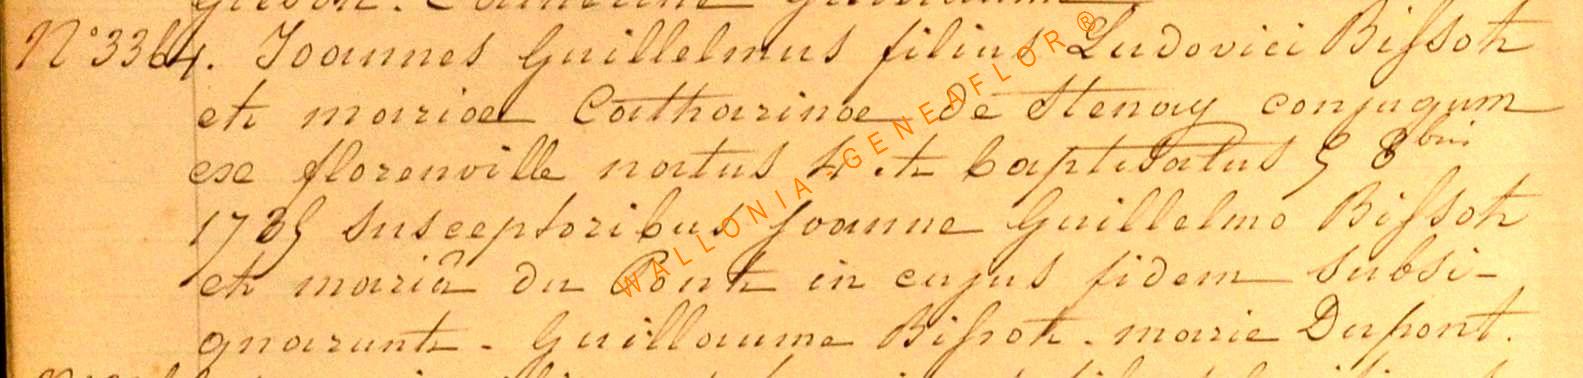 N° 3364. Joannes Guillelmus filius Ludovici Bissot
et mariae Catharinae de Stenay conjugum
ex florenville natus 4 et baptisatus 5 8bris
1735 susceptoribus Joanne Guillelmo Bissot
et mariâ du Pont in cujus fidem subsi-
gnarunt - Guillaume Bissot - marie Dupont.
WALLONIA-GENEAFLOR®